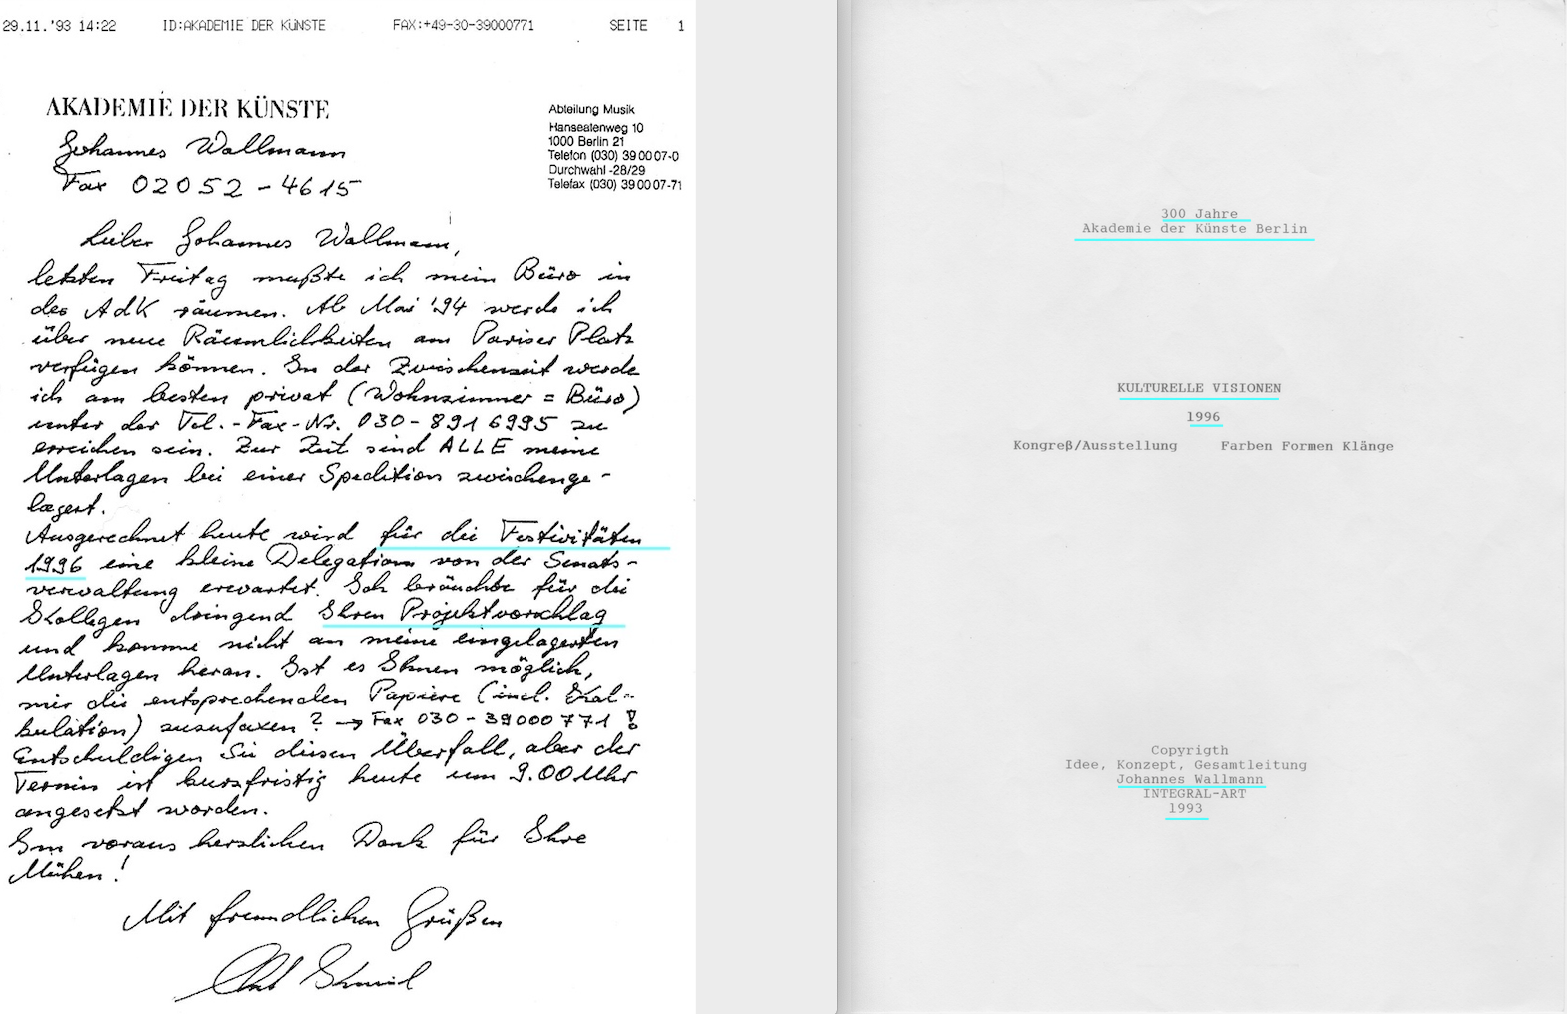 29.11.'93 14:22 ID:AKADEMIE DER KÜNSTE FAX:+49-30-39000771 SEITE 1
AKADEMIE DER KÜNSTE
Abteilung Musik
Hanseatenweg 10
1000 Berlin 21
Telefon (030) 39 00 07-0
Durchwahl -28/29
Telefax (030) 39 00 07-71
Johannes Wallmann
Fax 02052-4615
Lieber Johannes Wallmann,
letzten Freitag mußte ich mein Büro in
der AdK räumen. Ab Mai '94 werde ich
über neue Räumlichkeiten am Pariser Platz
verfügen können. In der Zwischenzeit werde
ich am besten privat (Wohnzimmer = Büro)
unter der Tel.-Fax-Nr. 030-891 6995 zu
erreichen sein. Zur Zeit sind ALLE meine
Unterlagen bei einer Spedition zwischenge-
lagert.
Ausgerechnet heute wird für die Festivitäten
1996 eine kleine Delegation von der Senats-
verwaltung erwartet. Ich bräuchte für die
Kollegen dringend Ihren Projektvorschlag
und komme nicht an meine eingelagerten
Unterlagen heran. Ist es Ihnen möglich,
mir die entsprechenden Papiere (incl. Kal-
kulation) zuzufaxen? → Fax 030-39000771 !
Entschuldigen Sie diesen Überfall, aber der
Termin ist kurzfristig heute um 9.00 Uhr
angesetzt worden.
Im voraus herzlichen Dank für Ihre
Mühen!
Mit freundlichen Grüßen
300 Jahre
Akademie der Künste Berlin
KULTURELLE VISIONEN
1996
Kongreß/Ausstellung Farben Formen Klänge
Copyrigth
Idee, Konzept, Gesamtleitung
Johannes Wallmann
INTEGRAL-ART
1993